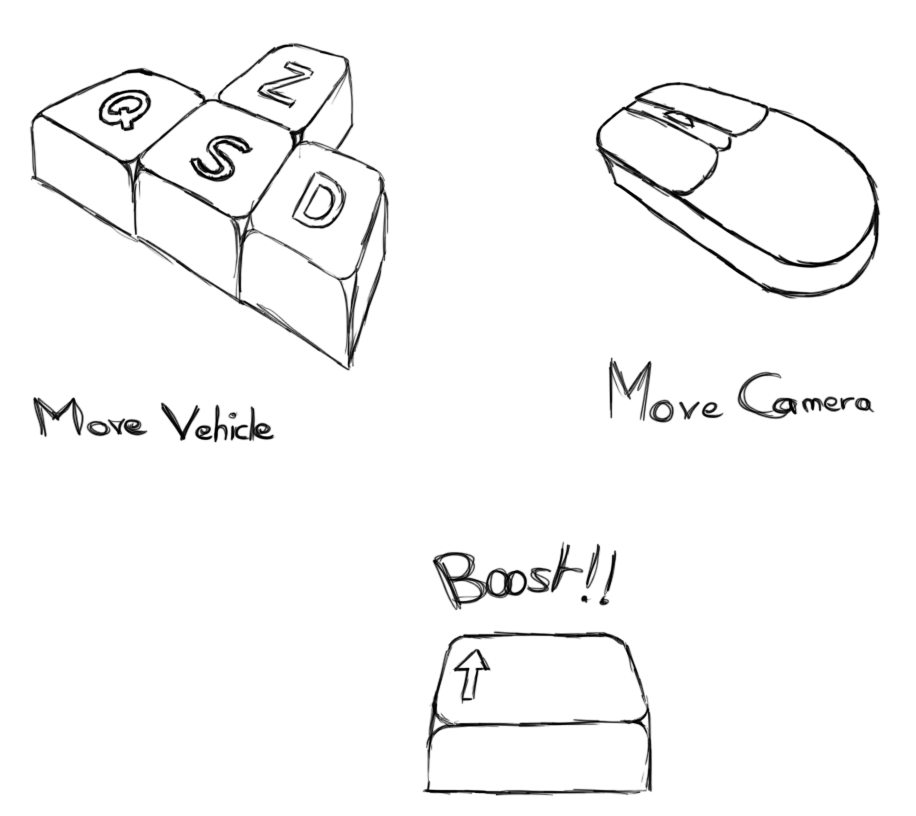 Z
Q S D
Move Vehicle
Move Camera
Boost!!